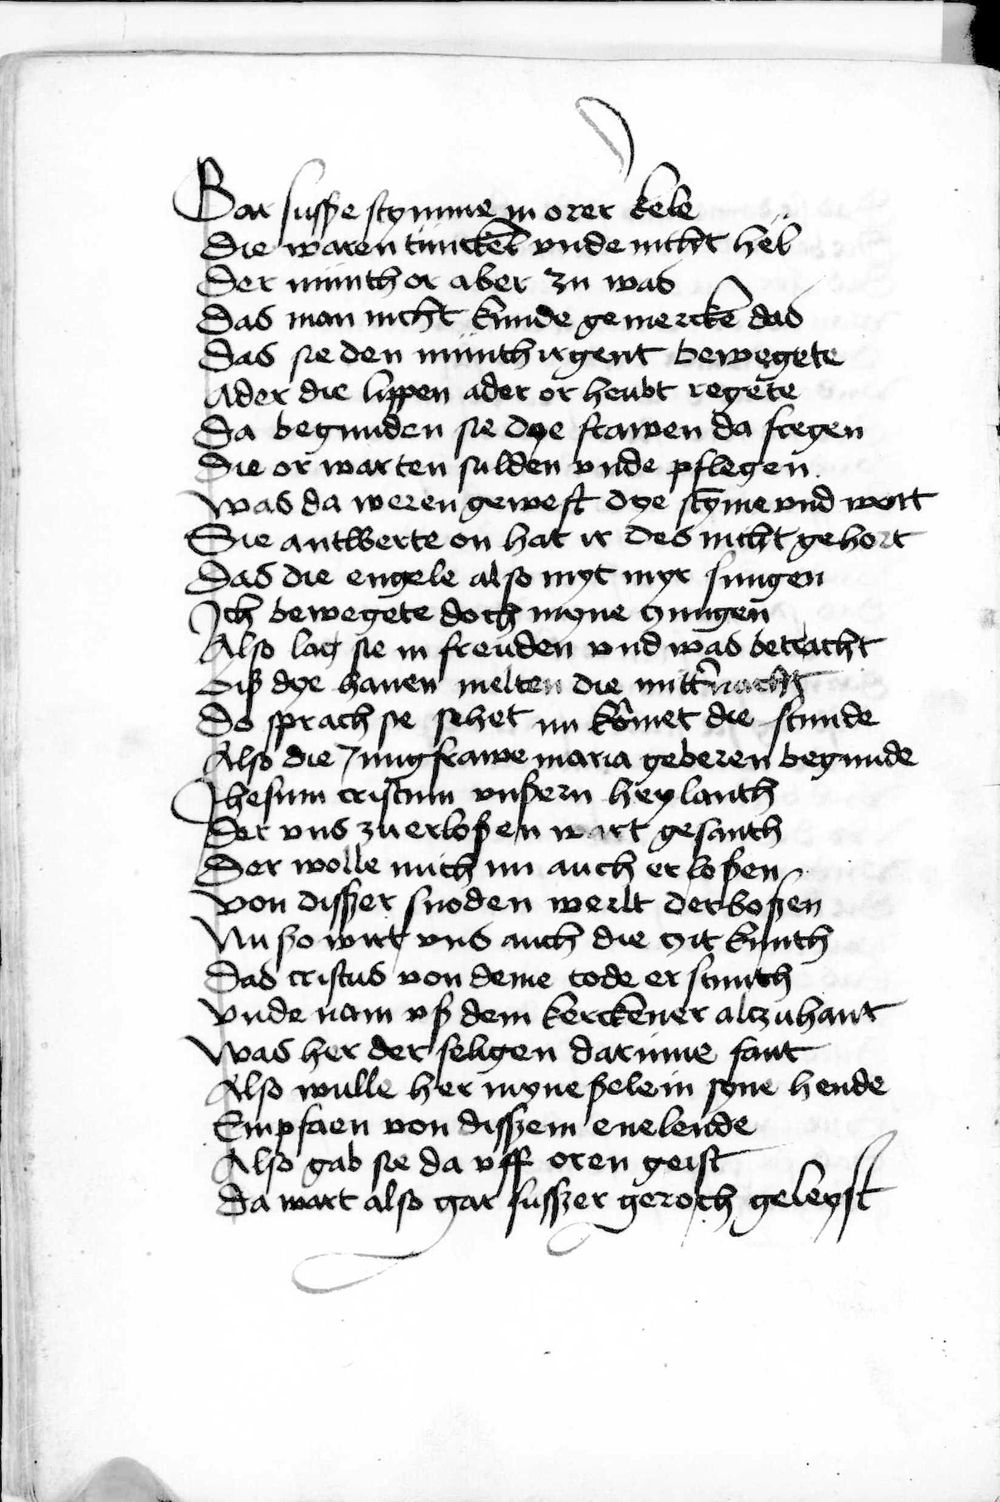 Gar susße stymme in orer kele
Die waren tunckel vnde nicht hel
Der munth or aber zu was
Das man nicht kunde gemercke das
Das sie den munth irgent bewegete
Ader die lippen ader or heubt regete
Da begunden sie dye frawen da fregen
Die or warten sulden vnde pflegen
Was da weren gewest dye styme vnd wort
Sie antwerte on hat ir des nicht gehort
Das die engele also myt myr sungen
Ich bewegete doch myne zungen
Also lag sie in freuden vnd was betracht
Biß dye hanen melten die mitternacht
Do sprach sie sehet nu komet die stunde
Also die Jungfrawe maria geberen begunde
Jhesum cristum vnßern heylanth
Der vns zu erloßen wart gesanth
Der wolle mich nu auch erloßen
Von disßer snoden werlt der boßen
Nu ßo wirt vns auch die zit kunth
Das cristus von deme tode erstunth
Vnde nam vß dem kerckener alzuhant
Was her der seligen darinne fant
Also wulle her myne ßele in syne hende
Empfaen von disßem enelende
Also gab sie da vff oren geist
Da wart also gar susßer geroch geleyst